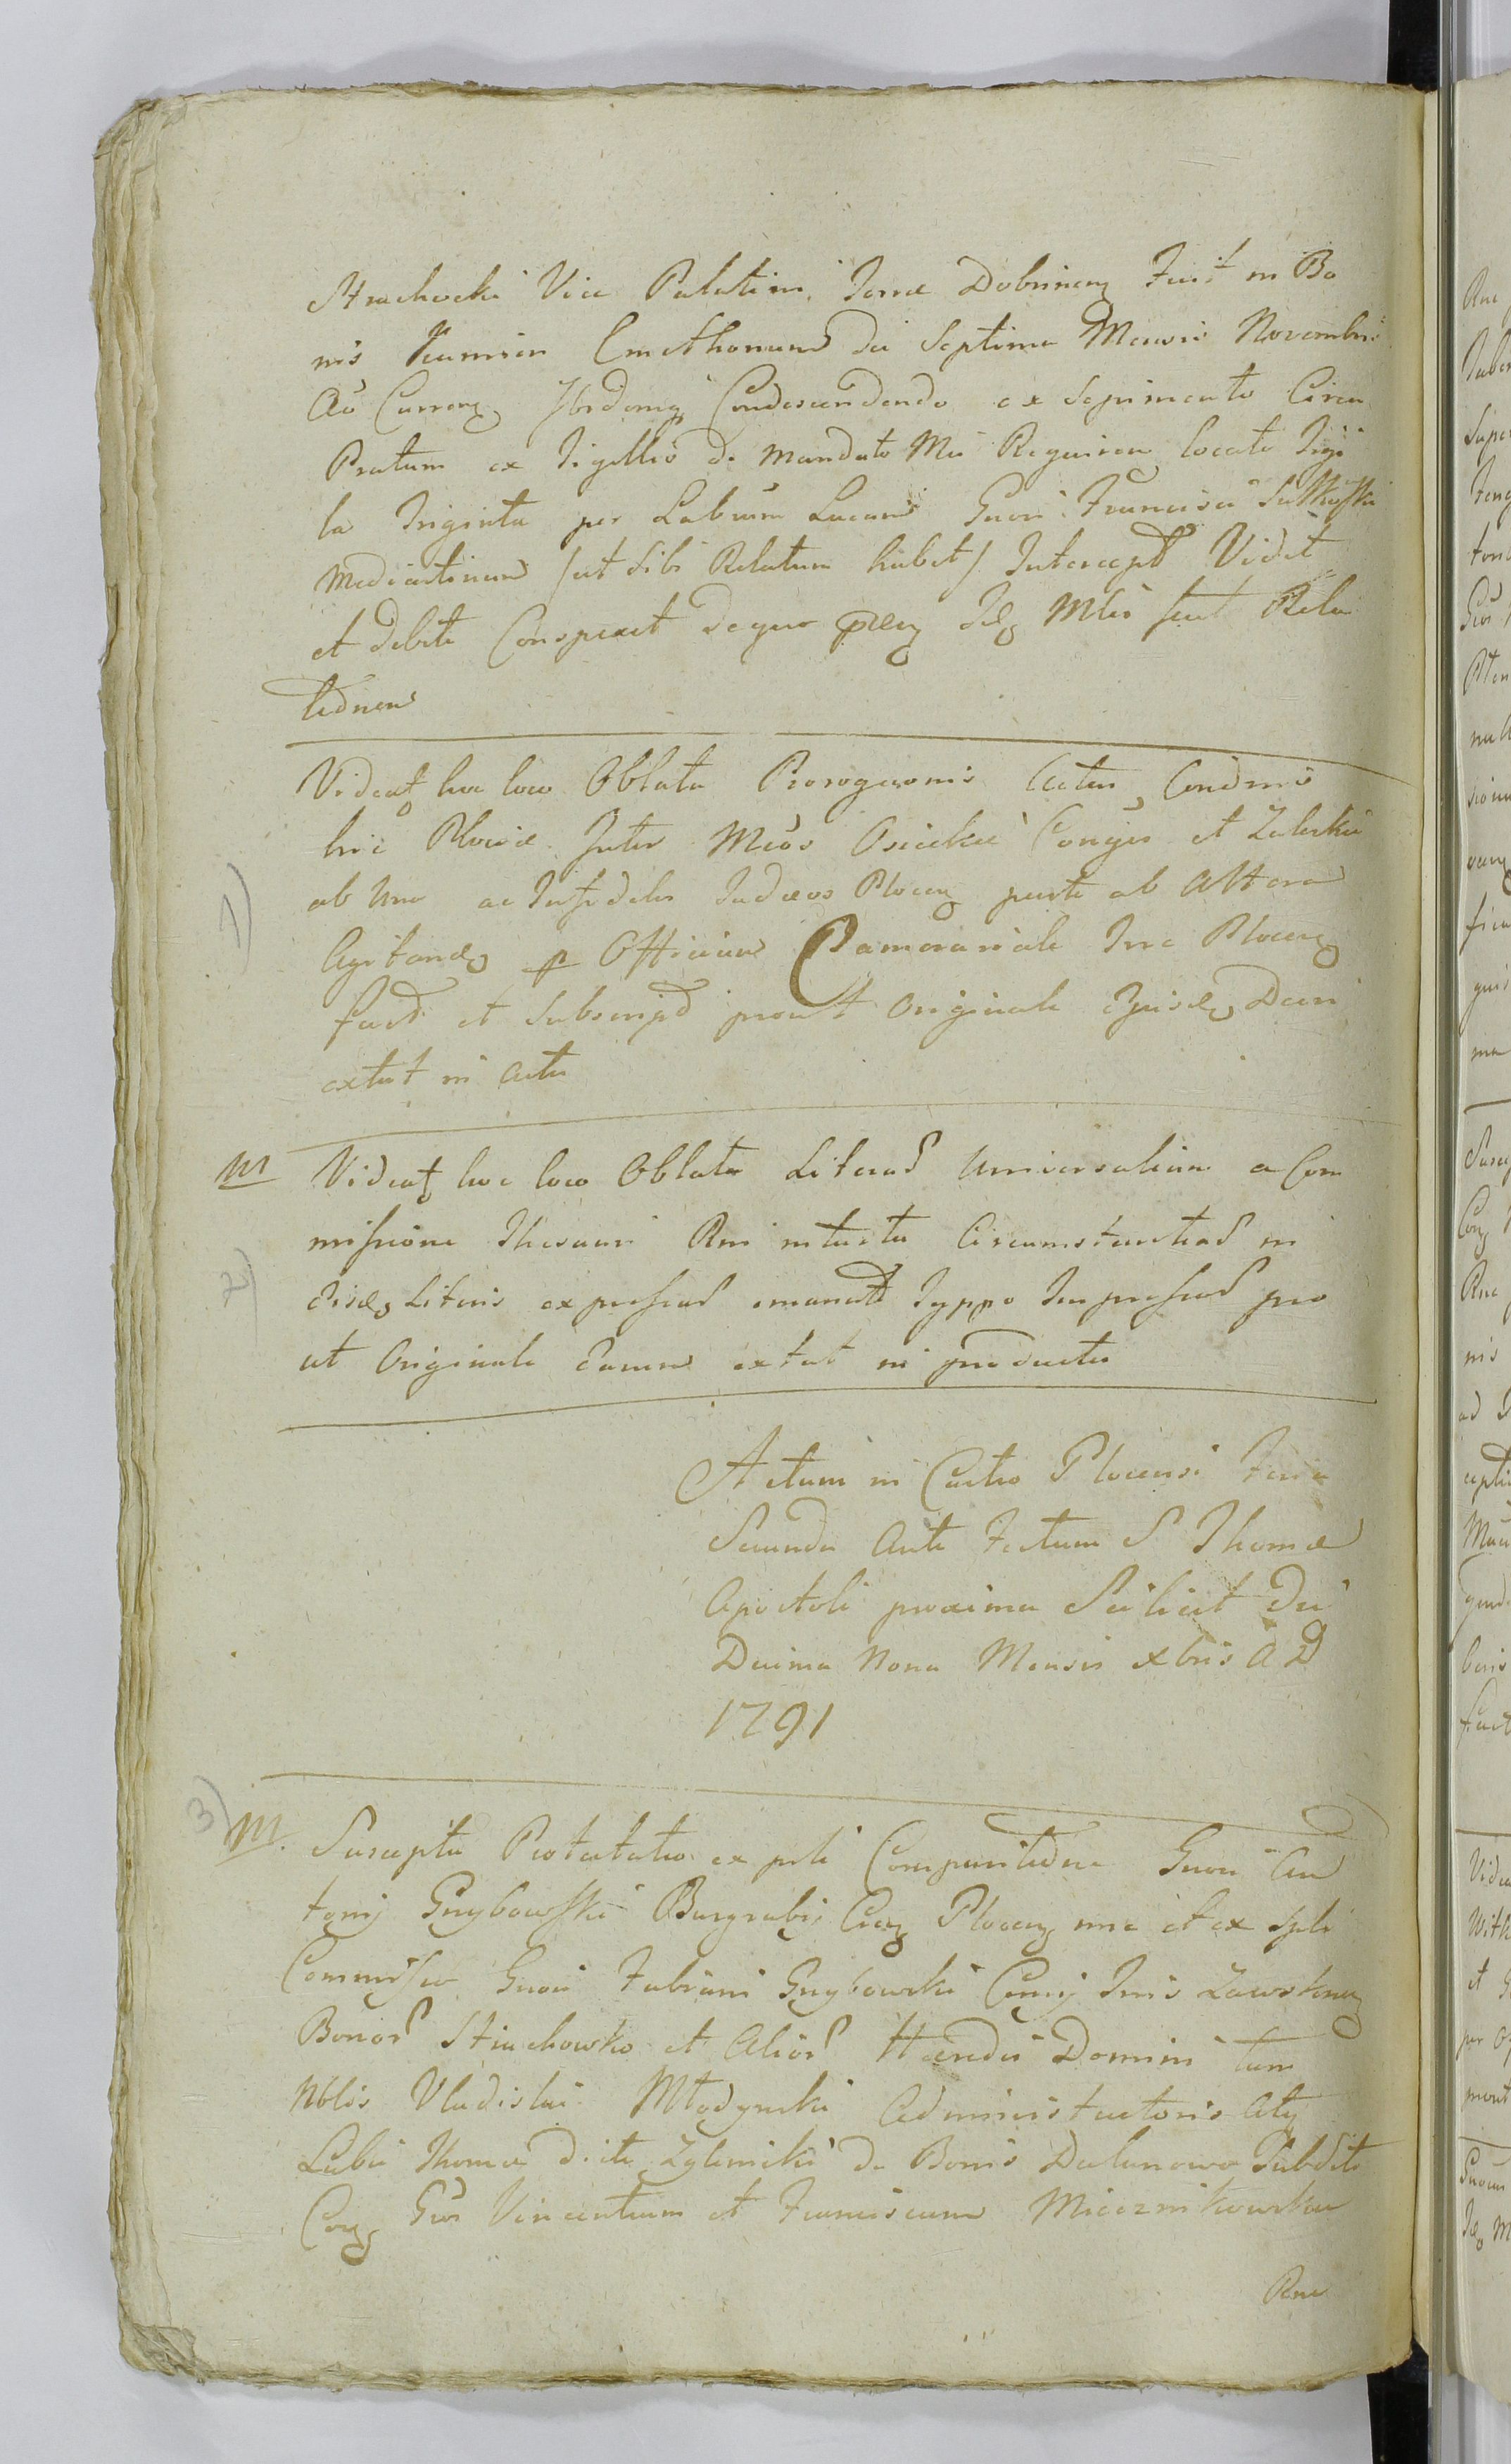 Strachocki Vice Palatini Terrae Dobrinen Fuit in Bo
nis Kumsin Cmethonum die Septima Mensis Novembris
Ao Curren Ibidemq Condescendendo ex Sepimento Circa
Pratum ex Tigellis de Mandato Mci Requiren locato Tigi
la Triginta per Labum Lucam Gnori Francisci
Mediantinum /ut Sibi Relatum habet/ Intercept Vidit
et debite Conspexit de quo pnen Idq Mtris fecit Rela
tionem
Videat hoc loco Oblata Prorogaonis Actus Condnis
hic Plociae Inter Mcos Osieckie Conges et Zaleskie
1) ab una ac Infideles Judaeos Plocen parte ab Altera
Agitand p Officium Camerariale Trrae Plocen
fact et Subscript prout Originale Ejusd Deni
extat in Actu
M Videat hoc loco Oblata Literar Universalium a Com
missione Thesauri Rni intuitu Circumstantiar in
2) eisd Literis expressar emanat Typpo Impressar pro
ut Originale earum extat in producto
Actum in Castro Plocensi Feria
Secunda Ante Festum S Thomae
Apostoli proxima Scilicet Die
Decima Nona Mensis Xbris A D
1791
3) M. Suscepta Protestatio ex prli Comparitione Gnosi An
tonij Grzybowski Burgrabij Cren Plocen nec et ex spli
Commisso Gnosi Fabiani Grzybowski Cmij Tris Zawskrzen
Bonor Strachowko et Alior Haeredis Domini tum
Nblis Vladislai Młodzyncki Administratoris Atq
Labi Thomae dicti Zyleniki de Bonis Dalanowo Subditi
Con Gsos Vincentium et Franciscum Miecznikowskie
Rne